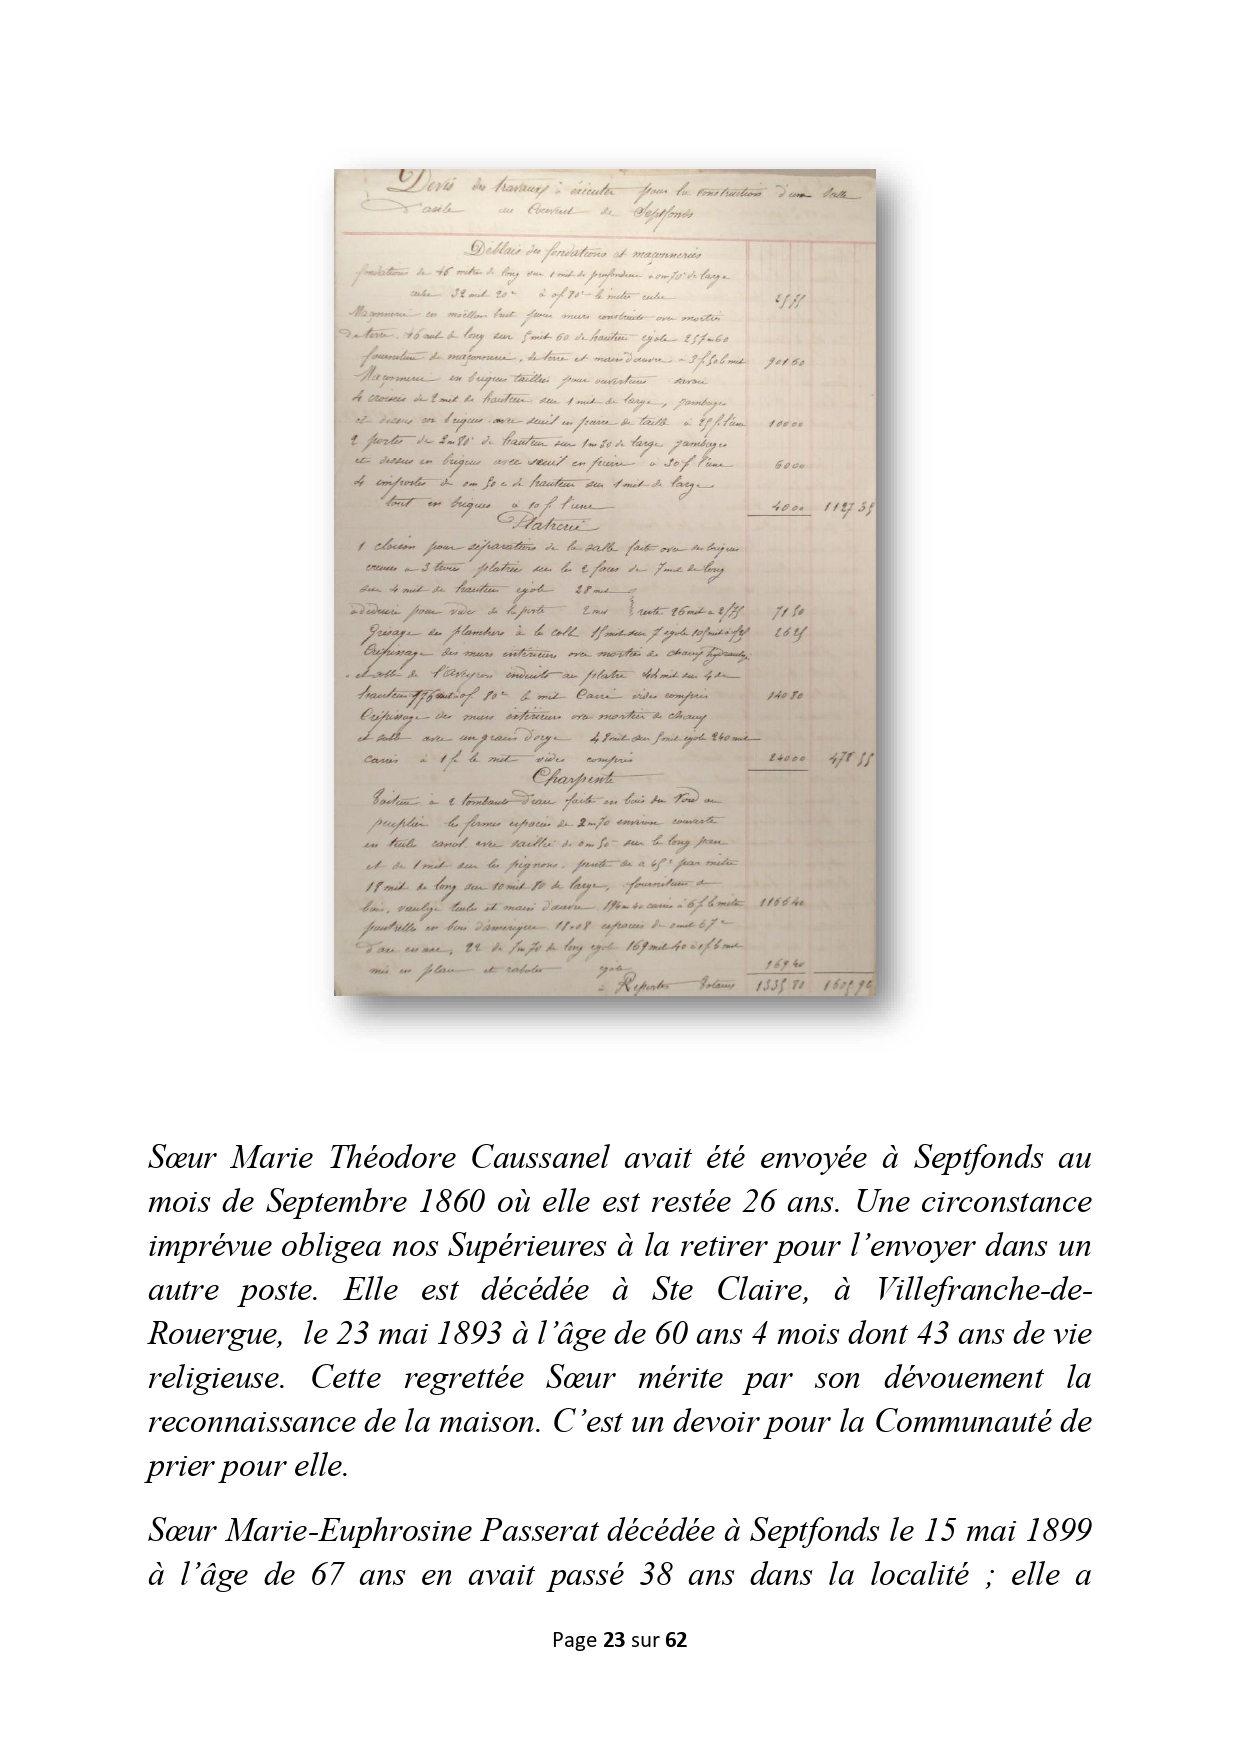 Devis des travaux à exécuter pour la construction d'une Salle
D'asile au Couvent de Septfonds
Déblais des fondations et maçonneries
fondations de 46 mètres de long sur 1 mèt de profondeur 0m70 de large
cube 32 mèt 20 à 0f 80 le mètre cube 2575
Maçonnerie en moellon brut pour murs construits avec mortier
De terre. 46 mèt de long sur 5 mèt 60 de hauteur égale 257m60
fourniture de maçonnerie, de terre et main d'œuvre à 3f.50 le mèt 90160
Maçonnerie en briques taillées pour ouvertures savoir
4 croisées de 2 mèt de hauteur sur 1 mèt de large, jambages
et dessus en briques avec seuil en pierre de taille à 25f. l'une 10000
2 portes de 2m80 de hauteur sur 1m30 de large jambages
et dessus en briques avec seuil en pierre à 30f l'une 6000
4 impostes de 0m50c de hauteur sur 1 mèt de large
tout en briques à 10f. l'une 4000 112735
Platrerie
1 cloison pour séparation de la salle faite avec des briques
creuses à 3 trous platrée sur les 2 faces de 7 mèt de long
sur 4 mèt de hauteur égale 28 mèt
à déduire pour vide de la porte 2 mèt reste 26 mèt à 2f75 7150
Grisage des planchers à la colle 15 mèt sur 7 égale 105 mèt à f25 2625
Crépissage des murs intérieurs avec mortier de chaux hydraulique
et sable de l'Aveyron enduits au platre 44 mèt sur 4 de
hauteur 176 mèt à 0f 80 le mèt Carré vides compris 14080
Crépissage des murs extérieurs avec mortier de chaux
et sable avec un grain d'orge 48 mèt sur 5 mèt égale 240 mèt
carrés à 1f. le mèt vides compris 24000 47855
Charpente
Toiture à 2 tombants d'eau faite en bois du Nord ou
peuplier les fermes espacées de 2m70 environ couverte
en tuile canal avec saillie de 0m50 sur le long pan
et de 1 mèt sur les pignons, pente de 0 45c par mètre
18 mèt de long sur 10 mèt 80 de large, fourniture de
bois, tuile et main d'œuvre. 194m40 carrés à 6f. le mètre 116640
poutrelles en bois d'amérique espacées de 0 mèt 67c
D'axe en axe, 22 de 7m70 de long égale 169 mèt 40 à 1f le mèt
mis en place et rabotés égale 16940
à Reporter Totaux 133580 160590
Sœur Marie Théodore Caussanel avait été envoyée à Septfonds au
mois de Septembre 1860 où elle est restée 26 ans. Une circonstance
imprévue obligea nos Supérieures à la retirer pour l’envoyer dans un
autre poste. Elle est décédée à Ste Claire, à Villefranche-de-
Rouergue, le 23 mai 1893 à l’âge de 60 ans 4 mois dont 43 ans de vie
religieuse. Cette regrettée Sœur mérite par son dévouement la
reconnaissance de la maison. C’est un devoir pour la Communauté de
prier pour elle.
Sœur Marie-Euphrosine Passerat décédée à Septfonds le 15 mai 1899
à l’âge de 67 ans en avait passé 38 ans dans la localité ; elle a
Page 23 sur 62